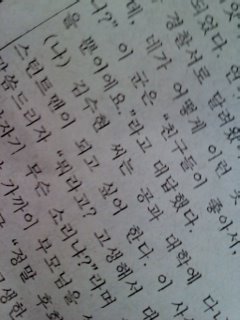 되었다.
경찰서로 달려왔
데, 네가 어떻게 이런 못
나?” 이 군은 “친구들이 좋아서,
을 뿐이에요.”라고 대답했다.
(나) 김수현 씨는 공과 대학에 다니
스턴트맨이 되고 싶어 한다. 이 사
말씀드리자 “뭐라고? 고생해서 대
갑자기 무슨 소리냐?”라며
가까이 부모님을
“정말 후회